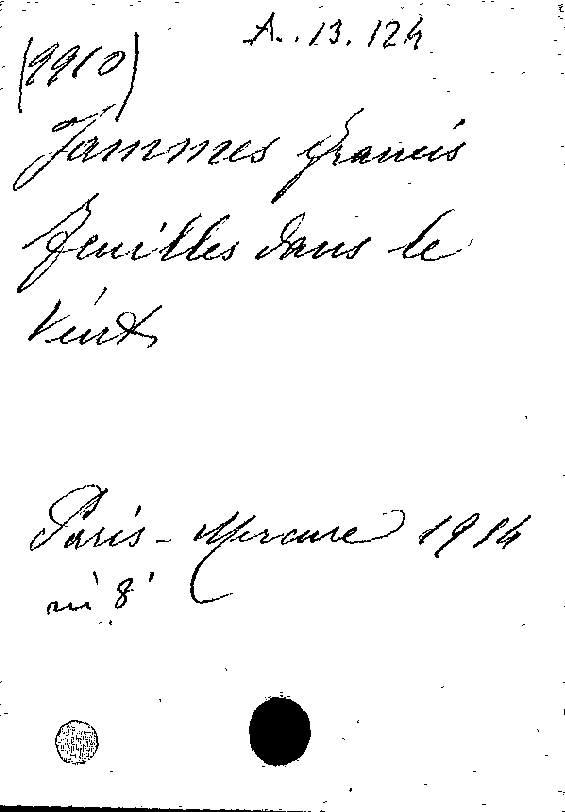 A. 13. 124
(9910)
Jammes Francis
Feuilles dans le
Vent
Paris - Mercure 1914
in 8°